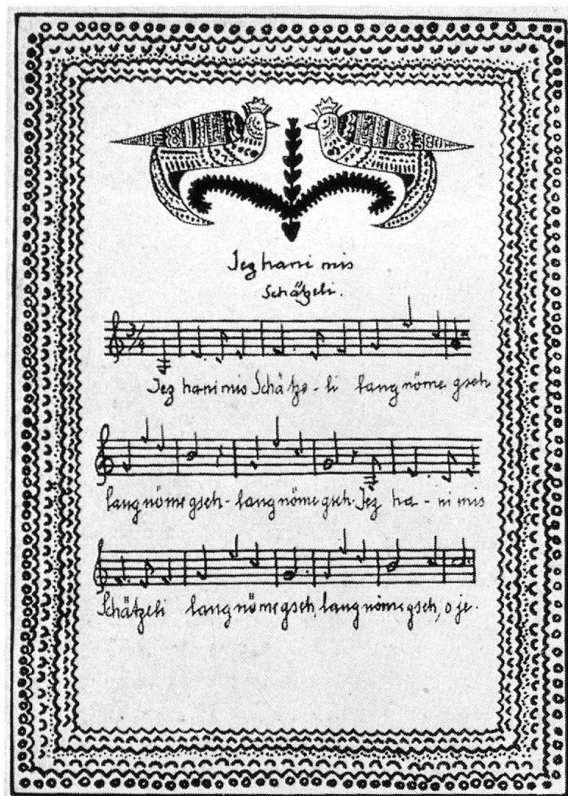 Jez hani mis
Schätzeli.
3/4
Jez hani mis Schätze - li lang nöme gseh
lang nöme gseh - lang nöme gseh. Jez ha - ni mis
Schätzeli lang nöme gseh, lang nöme gseh, o je.